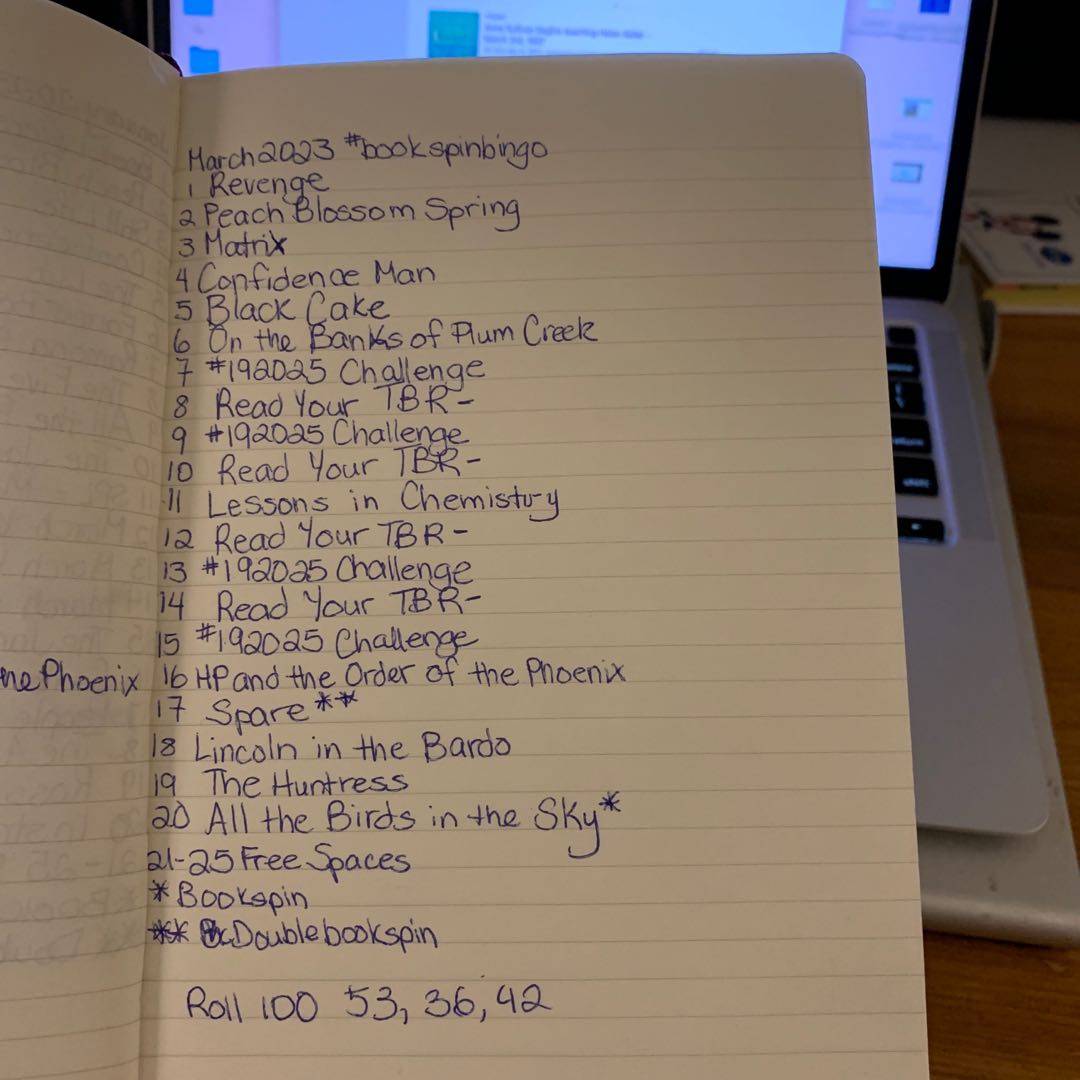 March 2023 #bookspinbingo
1 Revenge
2 Peach Blossom Spring
3 Matrix
4 Confidence Man
5 Black Cake
6 On the Banks of Plum Creek
7 #192025 Challenge
8 Read Your TBR-
9 #192025 Challenge
10 Read Your TBR-
11 Lessons in Chemistry
12 Read Your TBR-
13 #192025 Challenge
14 Read Your TBR-
15 #192025 Challenge
the Phoenix
16 HP and the Order of the Phoenix
17 Spare**
18 Lincoln in the Bardo
19 The Huntress
20 All the Birds in the Sky*
21-25 Free Spaces
* Bookspin
** Doublebookspin
Roll 100 53, 36, 42